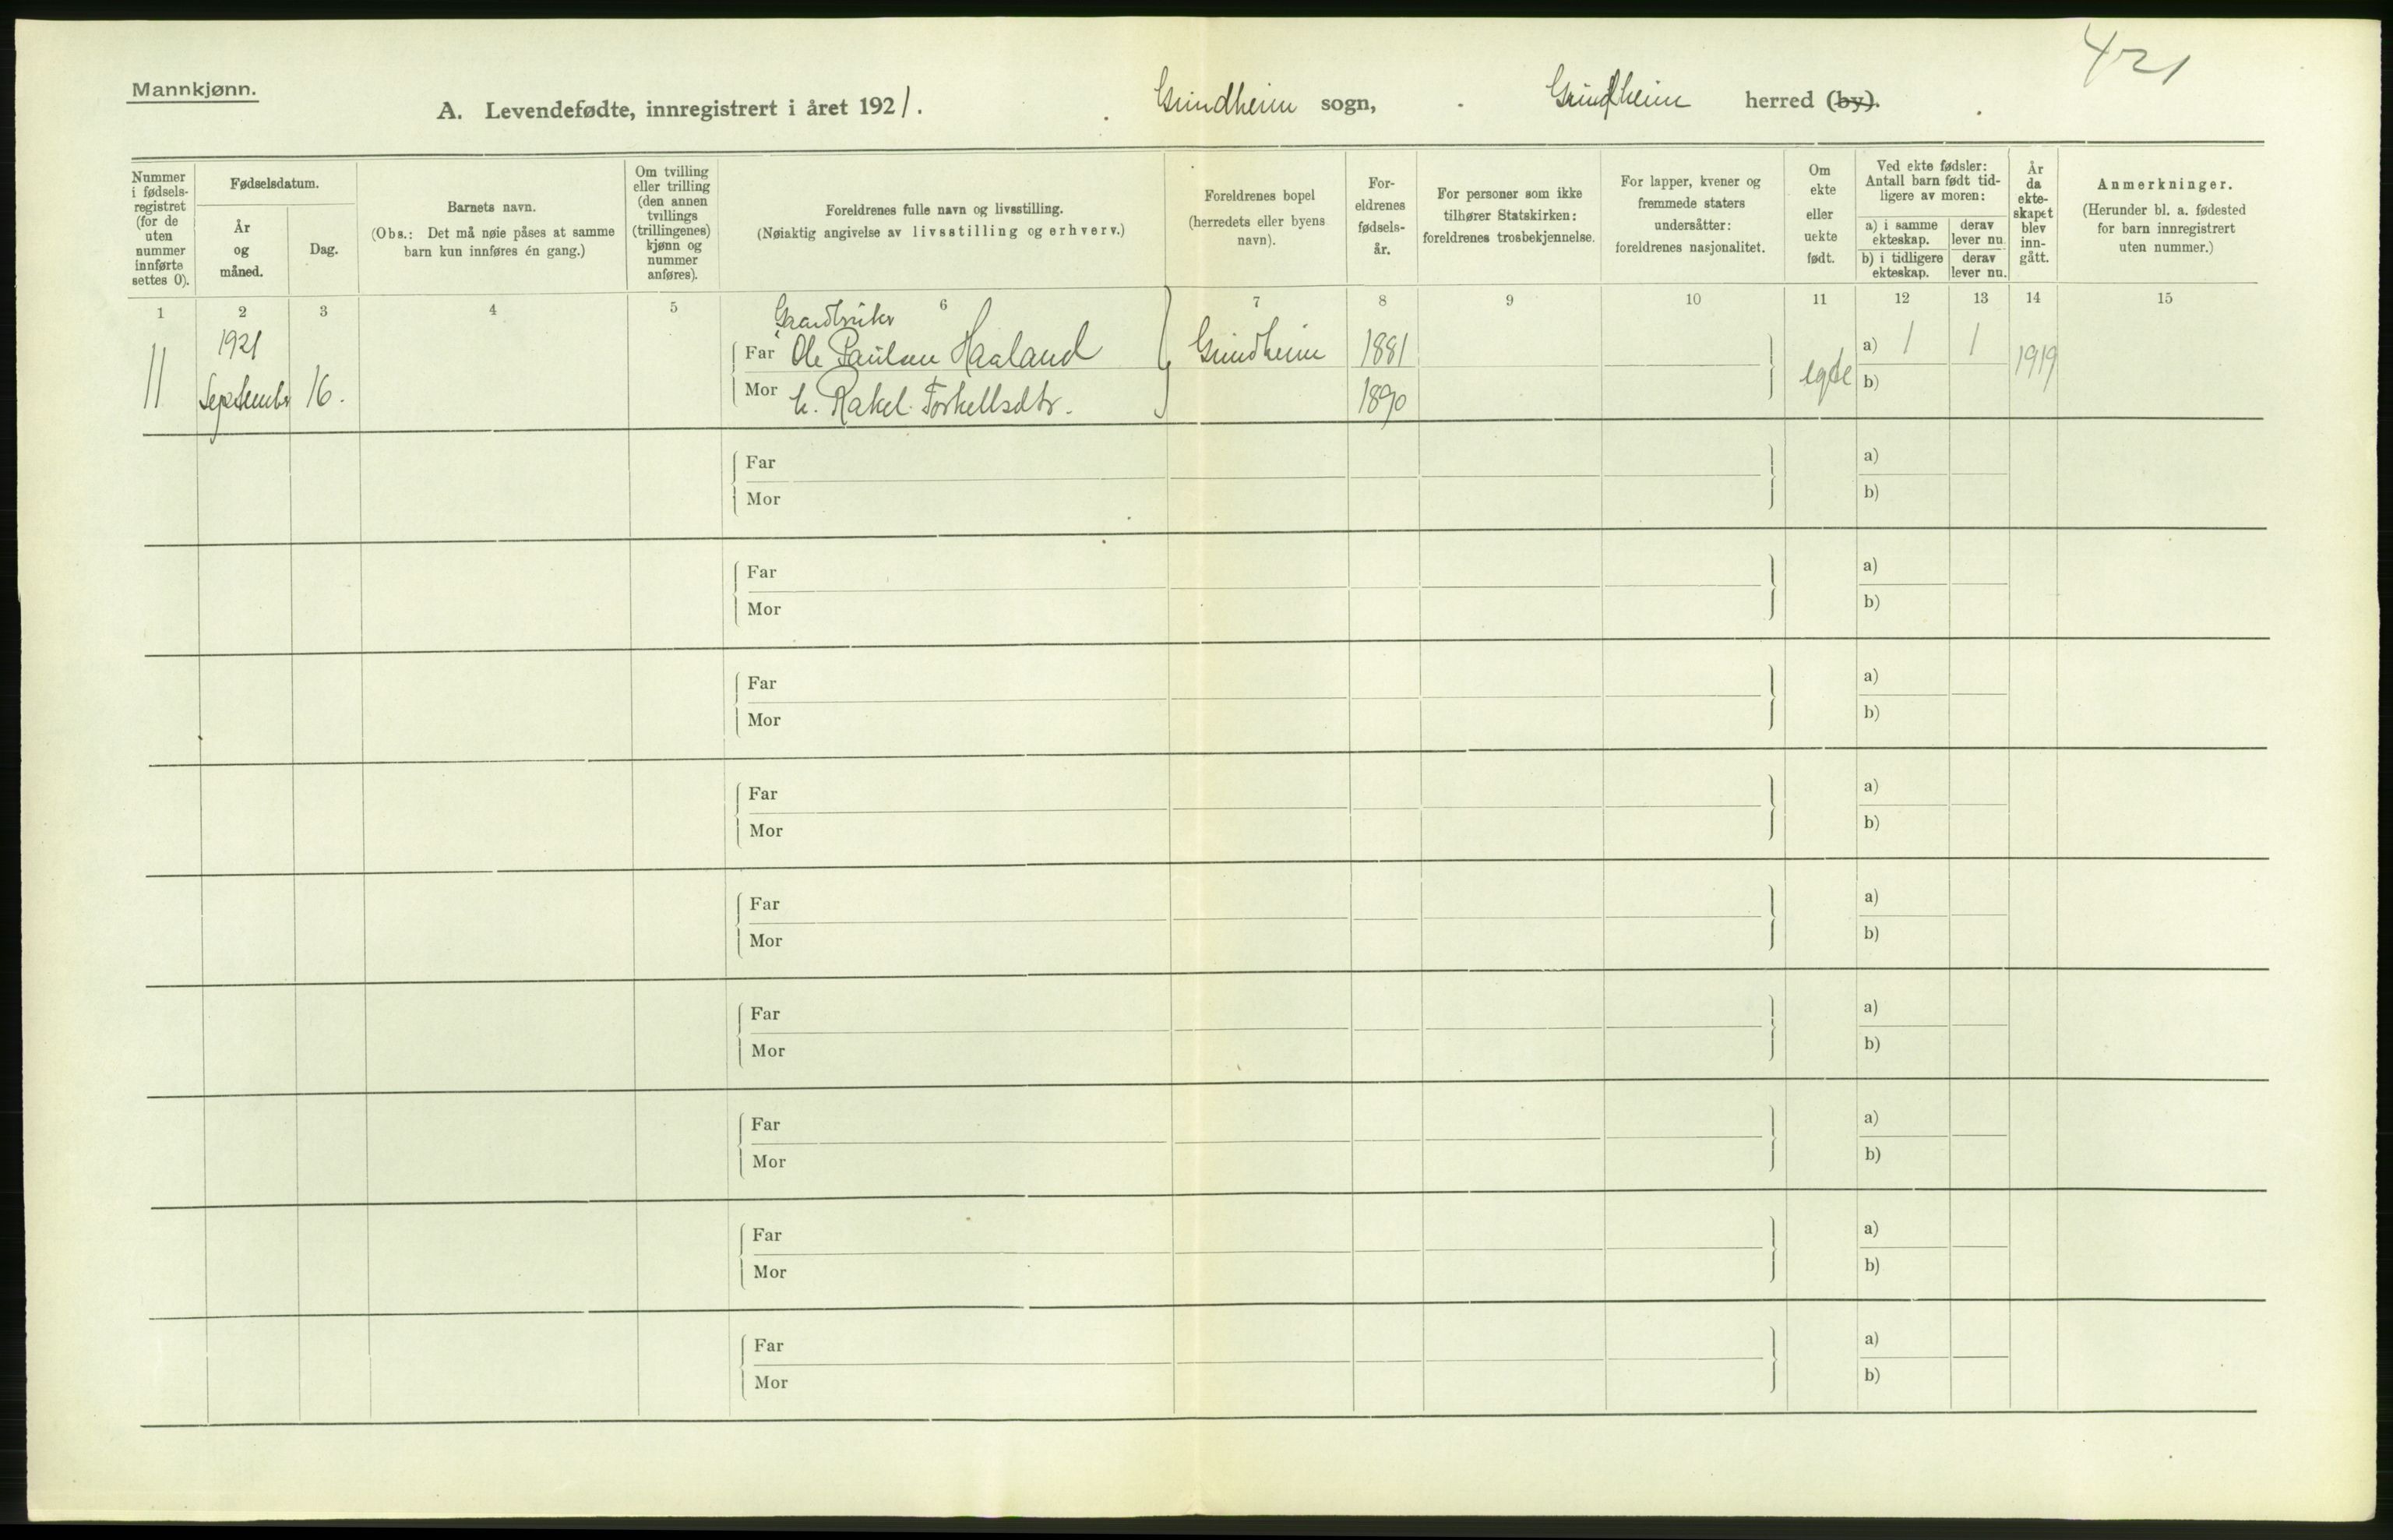 421
Mannkjønn.
A. Levendefødte, innregistrert i året 1921. Grindheim sogn, Grindheim herred (by).
Nummer i fødsels-registret (for de uten nummer innførte settes 0).
Fødselsdatum.
År og måned.
Dag.
Barnets navn.
(Obs.: Det må nøie påses at samme barn kun innføres én gang.)
Om tvilling eller trilling (den annen tvillings (trillingenes) kjønn og nummer anføres).
Foreldrenes fulle navn og livsstilling.
(Nøiaktig angivelse av livsstilling og erhverv.)
Foreldrenes bopel
(herredets eller byens navn).
For-eldrenes fødsels-år.
For personer som ikke tilhører Statskirken: foreldrenes trosbekjennelse.
For lapper, kvener og fremmede staters undersåtter: foreldrenes nasjonalitet.
Om ekte eller uekte født.
Ved ekte fødsler: Antall barn født tid-ligere av moren:
a) i samme ekteskap.
derav lever nu.
b) i tidligere ekteskap.
derav lever nu.
År da ekte-skapet blev inn-gått.
Anmerkninger.
(Herunder bl. a. fødested for barn innregistrert uten nummer.)
1 2 3 4 5 6 7 8 9 10 11 12 13 14 15
Gaardbruker
11 1921 September 16.
Far Ole Paulsen Haaland Grindheim 1881
Mor h. Rakel Torkellsdtr. 1890
egte a) 1 1 1919
b)
Far a)
Mor b)
Far a)
Mor b)
Far a)
Mor b)
Far a)
Mor b)
Far a)
Mor b)
Far a)
Mor b)
Far a)
Mor b)
Far a)
Mor b)
Far a)
Mor b)